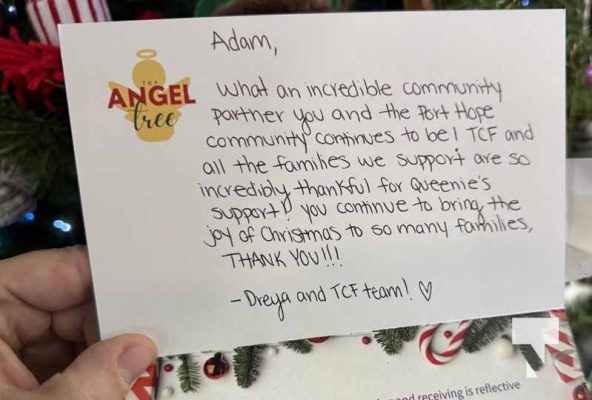 TCF
ANGEL
tree
Adam,
What an incredible community
partner you and the Port Hope
community continues to be! TCF and
all the families we support are so
incredibly thankful for Queenie's
support! You continue to bring the
joy of Christmas to so many families,
THANK YOU!!!
- Dreya and TCF team! ♡
and receiving is reflective